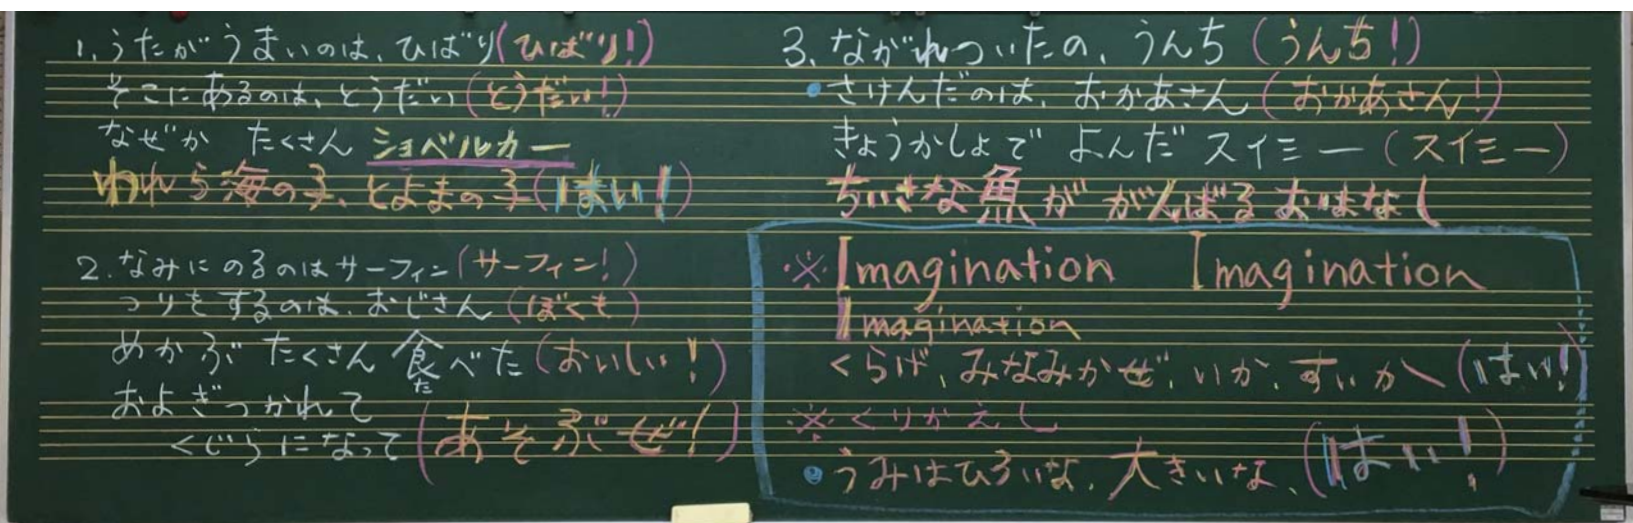 1.うたがうまいのは、ひばり(ひばり!)
そこにあるのは、とうだい(とうだい!)
なぜか たくさん ショベルカー
われら海の子、とよまの子(はい!)
2.なみにのるのはサーフィン(サーフィン!)
つりをするのは、おじさん(ぼくも)
めかぶ たくさん 食べた(おいしい!)
た
およぎつかれて
くじらになって(あそぶぜ!)
3.ながれついたの、うんち(うんち!)
•さけんだのは、おかあさん(おかあさん!)
きょうかしょで よんだ スイミー(スイミー)
ちいさな魚が がんばる おはなし
※Imagination Imagination
Imagination
くらげ、みなみかぜ、いか、すいか(はい!)
※くりかえし
•うみはひろいな、大きいな、(はい!)